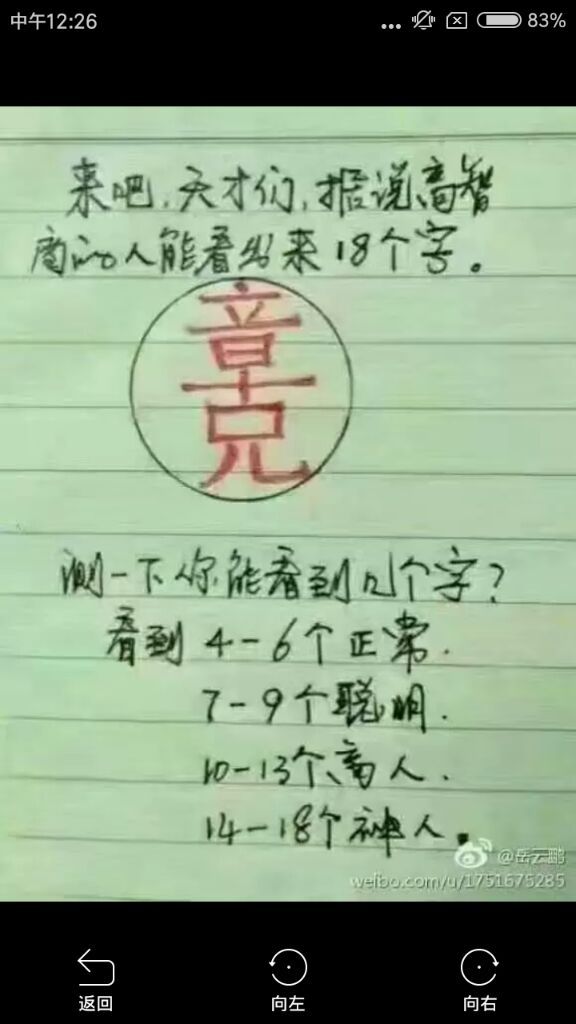 中午12:26 ... 83%
来吧,天才们,据说高智
商的人能看出来18个字。
章克
测一下你能看到几个字?
看到4-6个正常.
7-9个聪明.
10-13个高人.
14-18个神人.
@岳云鹏
weibo.com/u/1751675285
返回 向左 向右